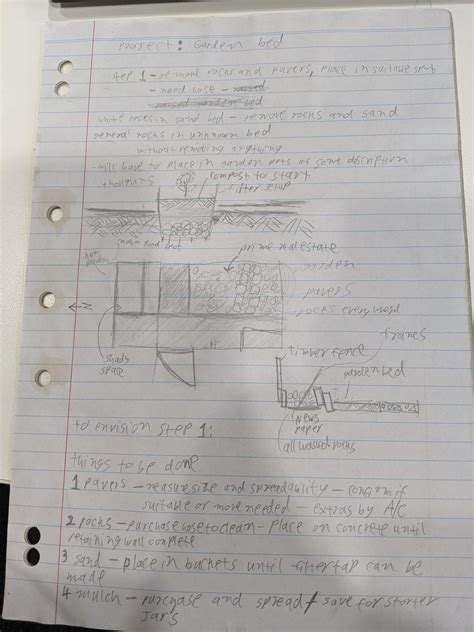 Project: Garden bed
Step 1 - remove rocks and pavers, place in suitable spot
- need hose -
raised garden bed
white roses in sand bed - remove rocks and sand
general rocks in unknown bed
without removing anything
- will have to place in garden beds of some description
thoughts
compost
prime real estate
garden
pavers
rocks everywhere
N
shady
space
frames
timber fence
garden bed
news
paper
all washed rocks
to envision step 1:
things to be done
1 pavers - measure size and spreadability - confirm if
suitable or more needed - extras by A/C
2 rocks - purchase hose to clean - place on concrete until
retaining wall complete
3 sand - place in buckets until filter tap can be
made
4 mulch - purchase and spread / save for starter
jar's